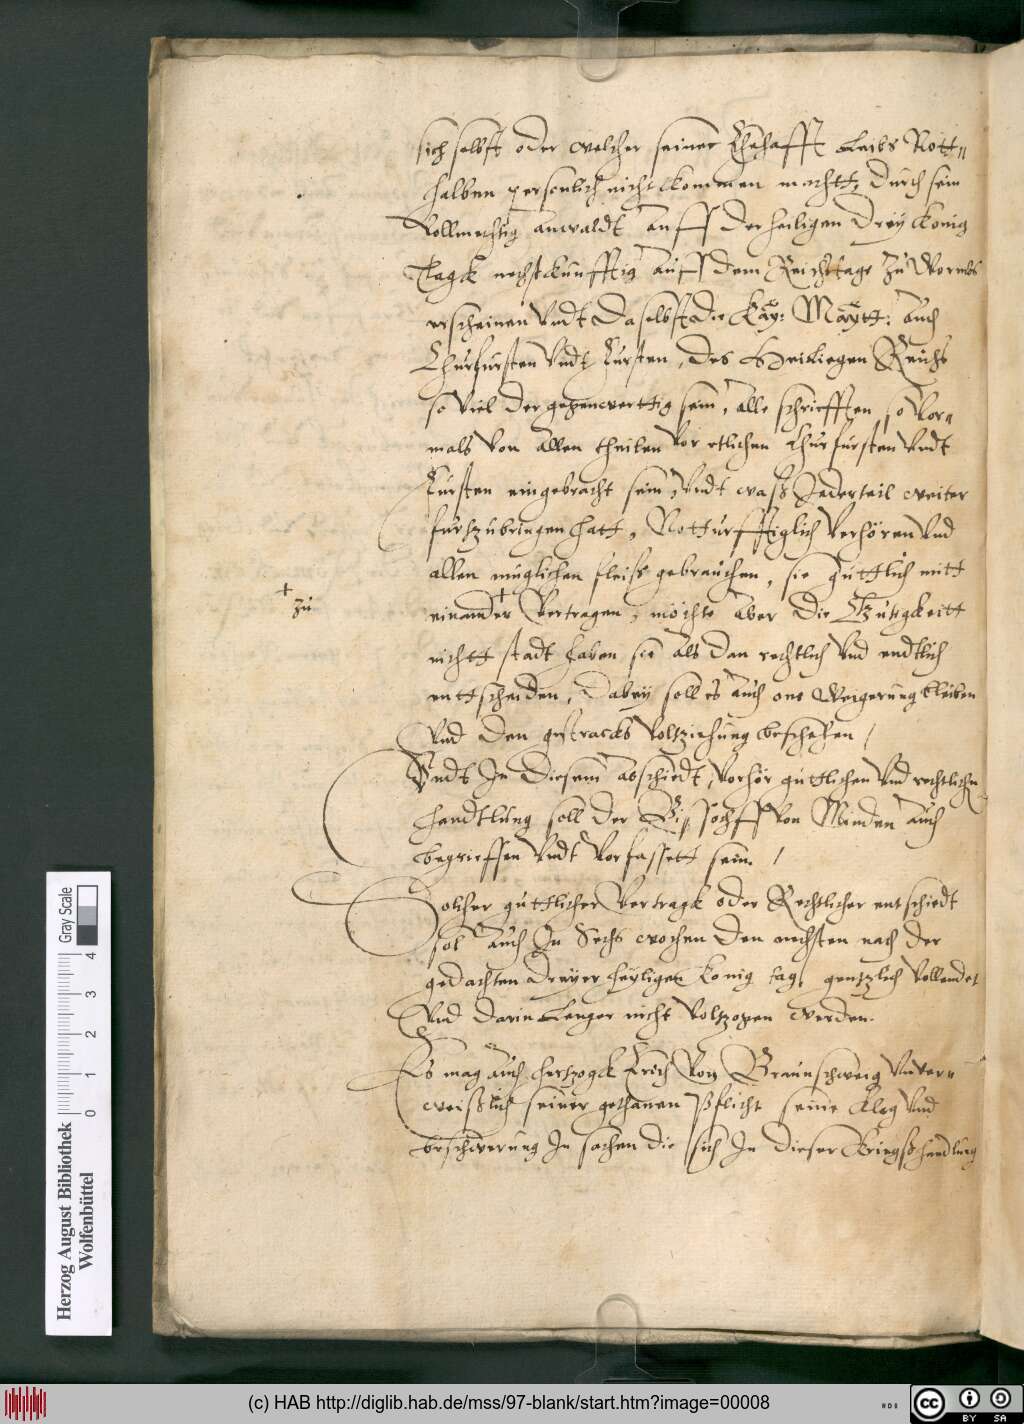 sich selbst oder welcher seiner Ehehafft Leibs Nott„
halben personlich nicht kommen mochtt, durch sein
Vollmechtig anwaldt auff der heiligen Drey Konig
Tagk nechstkunfftig auff dem Reichstage zu Wormbs
erscheinen Vndt daselbst die Kay: Maytt: auch
Churfursten Vndt Fursten, des Heiliegen Reichs
so viel der gegenwerttig sein, alle schriefften so Vor„
mals von allen theilen Vor etlichen Churfursten Vndt
Fursten eingebracht sein, Vndt waß Jederteil weiter
furzubringen hatt, Notturfftiglich Verhören Vnd
allen muglichen fleiß gebrauchen, sie guttlich mitt
+ zu
einander + Vertragen, möchte aber die Gutigkeitt
nichtt stadt haben sie als dan rechtlich Vnd endtlich
enttscheiden, Dabey soll es auch one Weigerung bleiben
Vnd den gestracks Volziehung beschehen /
Vndt In diesem abschiedt, Vorhör guttlichen Vnd rechtlichen
handtlung soll der Bischoff Von Minden auch
begrieffen Vndt Vorfassett sein /
Solcher guttlicher Vertragk oder Rechtlicher entschiedt
sol auch In Sechs wochen den nechsten nach der
gedachten dreyer heyligen Konig tag, gentzlich Vollendet
Vnd darin Lenger nicht Voltzogen werden.
Es mag auch hertzogk Erich Von Braunschweig Vnver„
weißlich seiner gethanen Pflicht seine Klag Vnd
beschwerung In sachen die sich In dieser Kriegßhandlung
Herzog August Bibliothek
Wolfenbüttel
0 1 2 3 4
Gray Scale
(c) HAB http://diglib.hab.de/mss/97-blank/start.htm?image=00008
cc BY SA